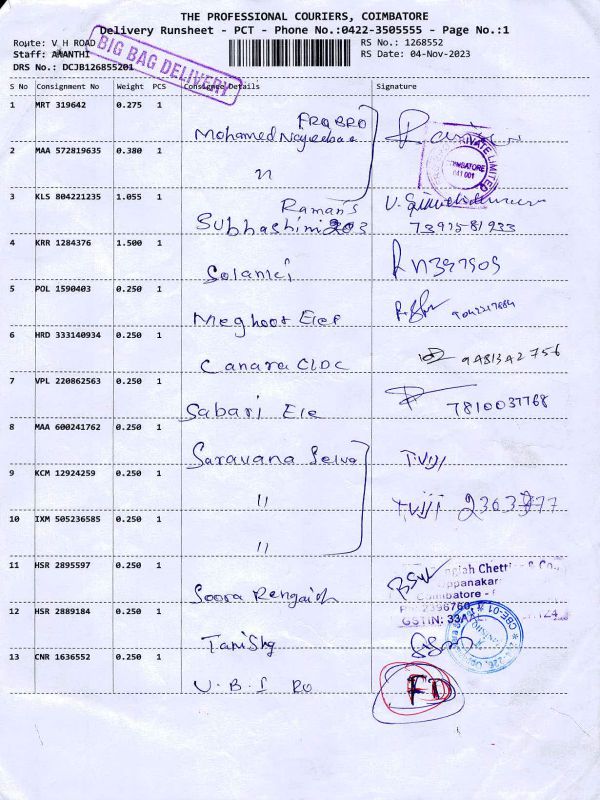 THE PROFESSIONAL COURIERS, COIMBATORE
Delivery Runsheet - PCT - Phone No.:0422-3505555 - Page No.:1
Route: V H ROAD RS No.: 1268552
Staff: ANANTHI RS Date: 04-Nov-2023
DRS No.: DCJB126855201
BIG BAG DELIVERY
S No Consignment No Weight PCS Consignee Details Signature
1 MRT 319642 0.275 1 Mohamed
2 MAA 572819635 0.380 1 "
PRIVATE LIMITED
COIMBATORE
641 001
3 KLS 804221235 1.055 1 Raman's
Subhashini 203 7397581933
4 KRR 1284376 1.500 1 Solanki
5 POL 1590403 0.250 1 Meghoot Elec
6 HRD 333140934 0.250 1 Canara CLDC
7 VPL 220862563 0.250 1 Sabari Ele 7810037768
8 MAA 600241762 0.250 1 Saravana Selva T.Viji
9 KCM 12924259 0.250 1 " T.Viji
10 IXM 505236585 0.250 1 "
11 HSR 2895597 0.250 1 Soora Rengaiah
Chetti & Co
Coimbatore -
Ph: 2396760
GSTIN: 33AA
12 HSR 2889184 0.250 1 Tanishq
CBE-01
13 CNR 1636552 0.250 1 U.B.I RO FD